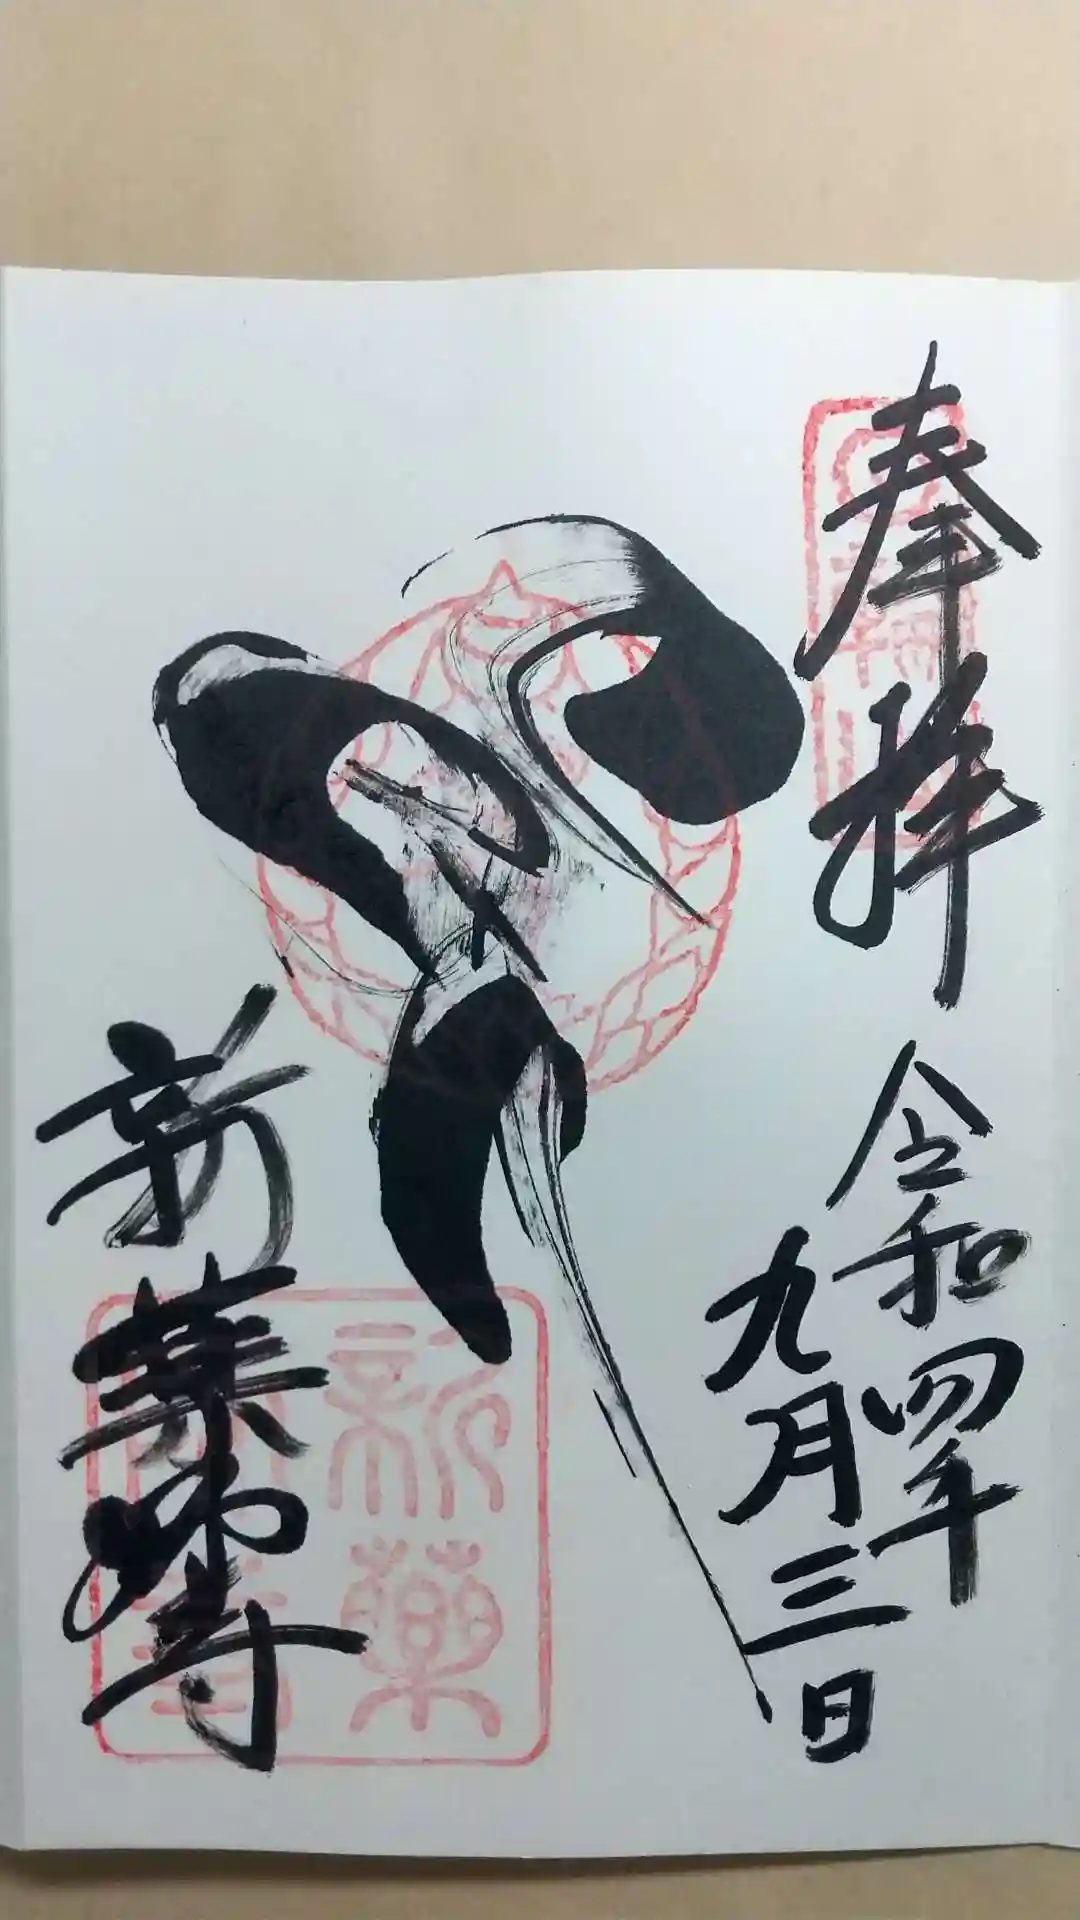 奉拝
令和四年
九月三日
新薬師寺
新薬
師寺